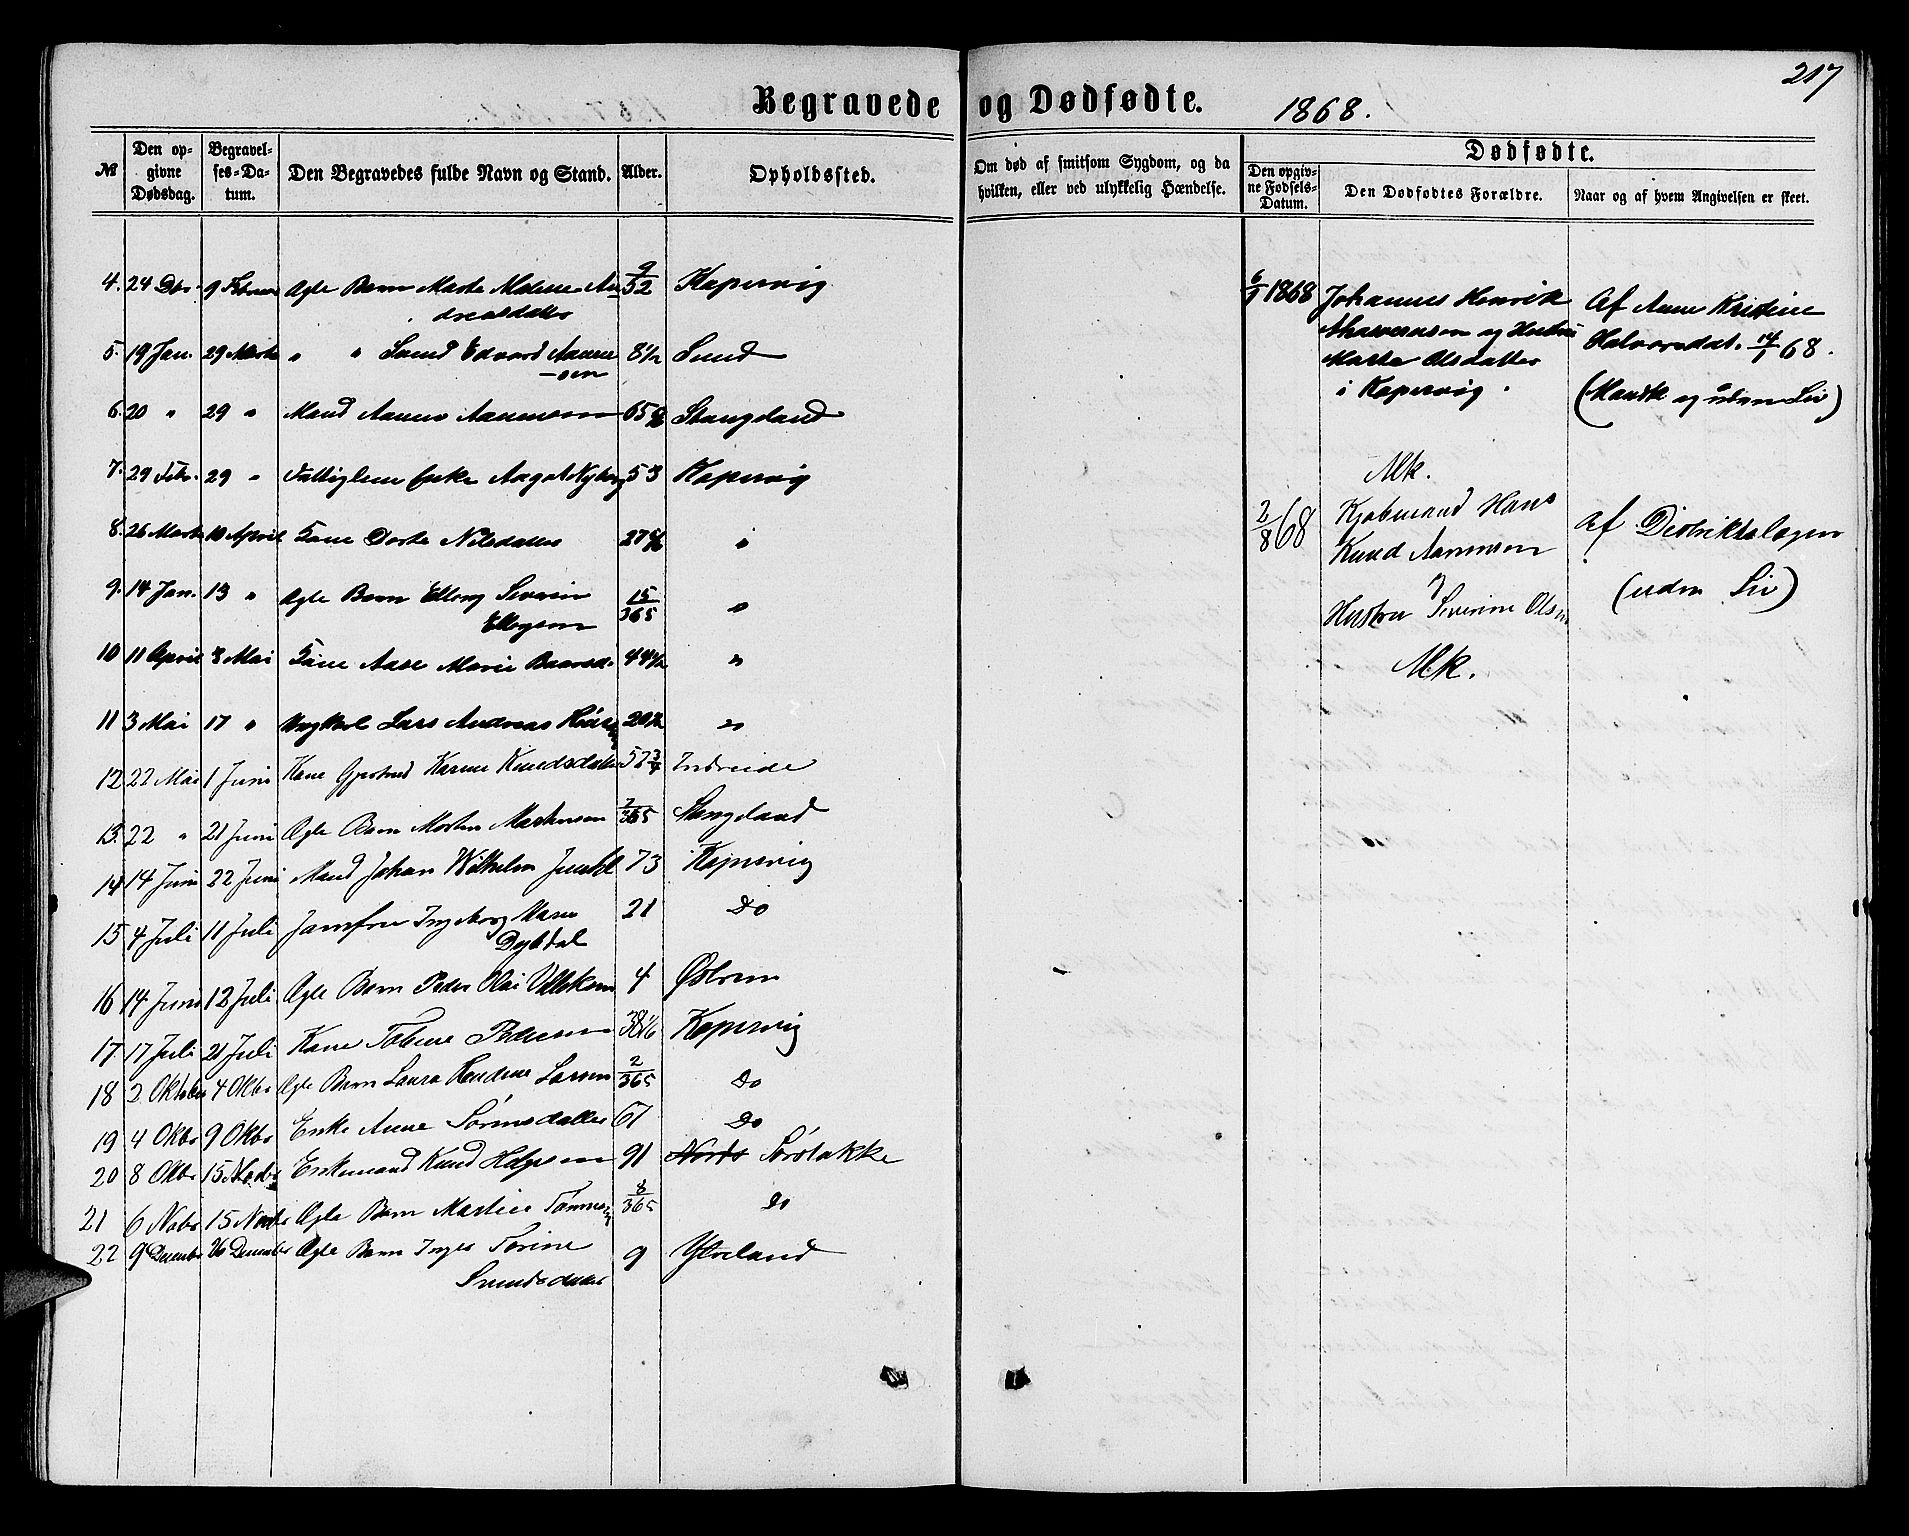 217
Begravede og Dødfødte. 1868.
№
Den opgivne Dødsdag.
Begravelses-Datum.
Den Begravedes fulde Navn og Stand.
Alder.
Opholdssted.
Om død af smitsom Sygdom, og da hvilken, eller ved ulykkelig Hændelse.
Dødfødte.
Den opgivne Fødsels-Datum.
Den Dødfødtes Forældre.
Naar og af hvem Angivelsen er skeet.
4. 24 Dbr. 9 Februar Ægte Barn Marte Malene An- 9/52 Kopervig
dreasdatter
5. 19 Jan. 29 Marts " " Svend Edvard Aanen 8 1/2 Sund
-sen
6. 20 " 29 " Mand Aanen Aanensen 65 Stangeland
7. 29 Febr. 29 " Fattiglem Enke Aagot Nyborg 53 Kopervig
8. 26 Marts 10 April Kone Dorte Nilsdatter 27 "
9. 14 Jan. 13 " Ægte Barn Elling Severin 15/365 "
Ellingsen
10 11 April 3 Mai Kone Aase Marie Baarsd. 44 1/2 "
11 3 Mai 17 " Ungkarl Lars Andreas 20 "
12 22 Mai 1 Juni Kone Gjertrud Karine Knudsdatter 57 3/4 Indreide
13. 22 " 21 Juni Ægte Barn Morten Mortensen 2/365 Stangeland
14 14 Juni 22 Juni Mand Johan Wilhelm 73 Kopervig
15 4 Juli 11 Juli Jomfru Ingeborg Marie 21 Do
Dybdal
16 14 Juni 12 Juli Ægte Barn Peder Olai 4 Østrem
17 17 Juli 21 Juli Kone Tobine Pedersen 38 1/6 Kopervig
18 2 Oktober 4 Oktbr Ægte Barn Laura Larsen 2/365 Do
19 4 Oktbr 9 Oktbr Enke Anne Sørensdatter 67 Do
20 8 Oktbr 15 Novbr Enkemand Knud Helgesen 91 Nords Sørstokke
21 6 Novbr 15 Novbr Ægte Barn Martin Tønnesen 8/365 Do
22 9 December 26 December Ægte Barn Inger Torine 9 Ytreland
Svendsdatter
6/1 1868 Johannes Henrik
Ahasverussen og Hustru
Marta Olsdatter
i Kopervig.
Af Anne Kristine
Halvorsdat. 14/1 68.
(Mandk og uden Liv)
Mk.
2/8 68 Kjøbmand Hans
Knud Aanensen
og
Hustru Severine Olsen
af Distriktslægen
(uden Liv)
Mk.